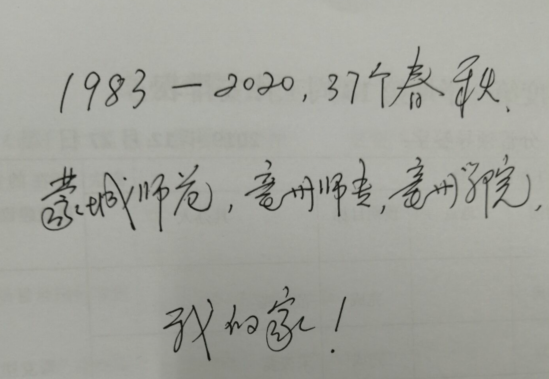 1983—2020,37个春秋,
蒙城师范,亳州师专,亳州学院,
我的家!